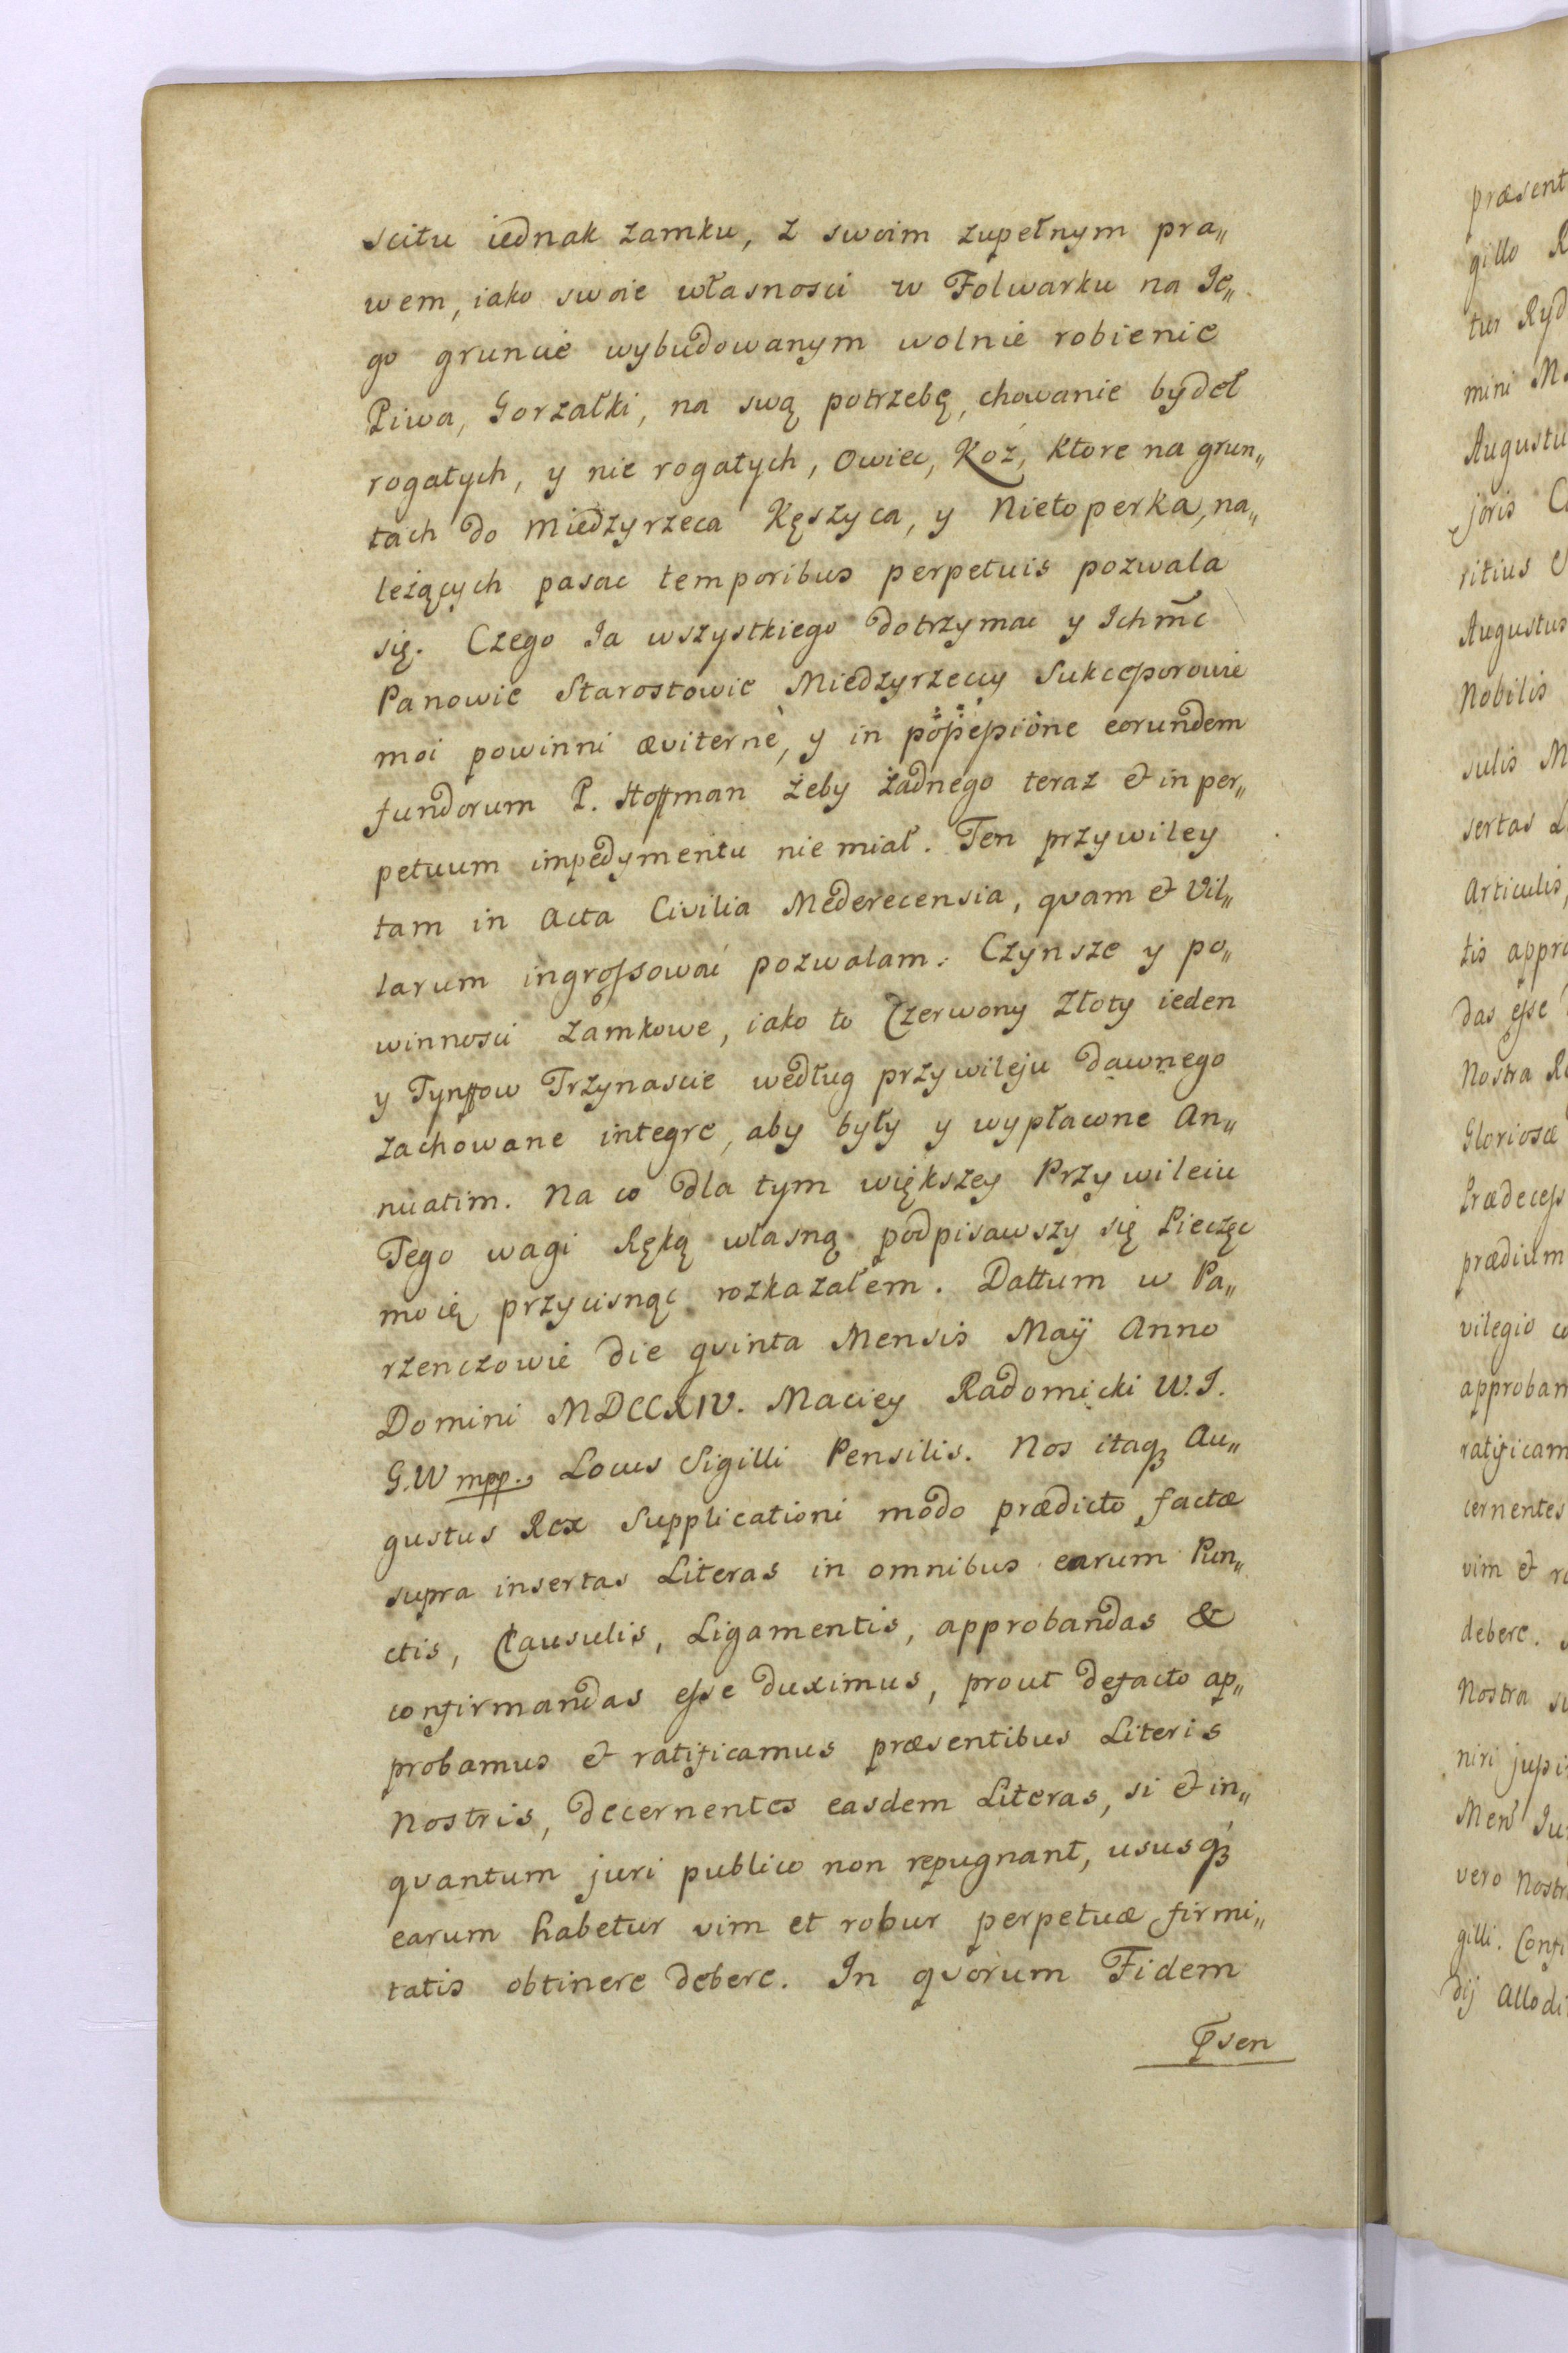 scitu iednak zamku, z swoim zupełnym pra„
wem, iako swoie własnosci w Folwarku na Ie„
go gruncie wybudowanym wolnie robienie
Piwa, Gorzałki, na swą potrzebę, chowanie bydeł
rogatych, y nie rogatych, Owiec, Koz, ktore na grun„
tach do Miedzyrzeca Kęszyca, y Nietoperka, na„
leżących pasac temporibus perpetuis pozwala
się. Czego Ia wszystkiego dotrzymac y Ichm̃c
Panowie Starostowie Miedzyrzeccy Sukceſsorowie
moi powinni æviternè, y in poſseſsione eorundem
fundorum P. Hoffman żeby żadnego teraz & in per„
petuum impedymentu nie miał. Ten przywiley
tam in Acta Civilia Mederecensia, qvam & Vil„
larum ingroſsować pozwalam. Czynsze y po„
winnosci zamkowe, iako to Czerwony Złoty ieden
y Tynffow Trzynascie według przywileju dawnego
zachowane integre, aby były y wypłacone An„
nuatim. Na co dla tym większey Przywileiu
Tego wagi Ręką własną podpisawszy się Pieczęc
moię przycisnąc rozkazałem. Dattum w Pa„
rzenczowie die qvinta Mensis Maÿ Anno
Domini MDCCXIV. Maciey Radomicki W.I.
G.W mpp. Locus Sigilli Pensilis. Nos itaqꝫ Au„
gustus Rex Supplicationi modo prædicto factæ
supra insertas Literas in omnibus earum Pun„
ctis, Clausulis, Ligamentis, approbandas &
confirmandas eſse duximus, prout defacto ap„
probamus & ratificamus præsentibus Literis
Nostris, decernentes easdem Literas, si & in„
qvantum juri publico non repugnant, ususqꝫ
earum habetur vim et robur perpetuæ firmi„
tatis obtinere debere. In qvorum Fidem
Præsen
præsent
gillo R
tus Ryd
mini M
Augustu
joris C
ritius
Augustus
Nobilis
sulis M
sertas L
Articulis,
tis appro
das eſse
Nostra Re
Gloriosæ
Prædeceſs
prædium
vilegio co
approbam
ratificam
cernentes
vim & ro
debere.
Nostra su
niri juſsi
Men
vero Nostr
gilli. Confi
dij Allodi